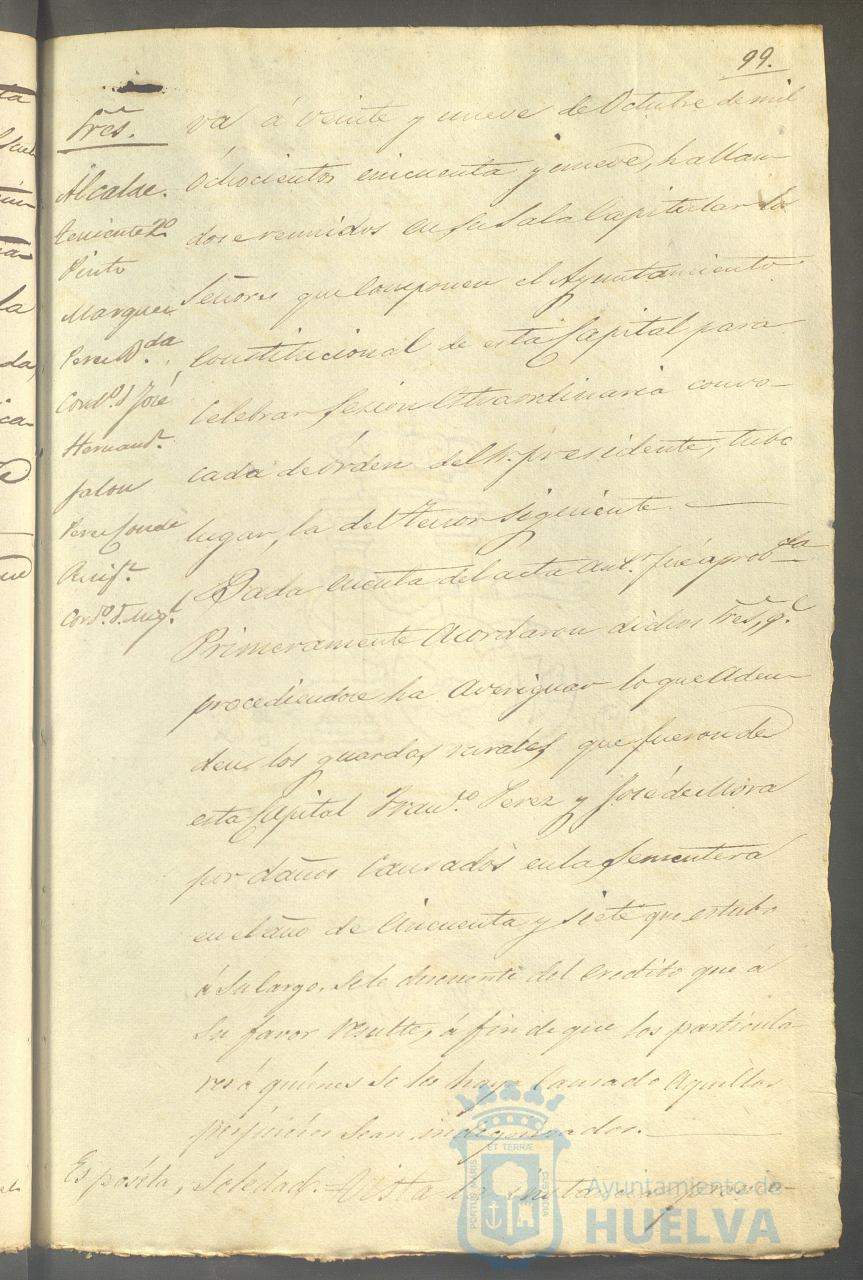 99.
Sres.
Alcalde.
Teniente 2º
Pinto
Marquez
Perez W.da
Cord.º D José
Hernand.z
Jalon
Perez Conde
Cord.º D. Mig.l
va á veinte y nueve de Octubre de mil
Ochocientos cincuenta y nueve, hallan-
dose reunidos en su Sala Capitular los
Señores que componen el Ayuntamiento
Constitucional de esta Capital para
celebrar sesion extraordinaria convo-
cada de órden del Sr. presidente, tubo
lugar, la del tenor siguiente.
Dada cuenta del acta ant.r fué aprob.da
Primeramente acordaron dichos Sres, q.e
procediendose ha averiguar lo que aden-
den los guardas rurales que fueron de
esta Capital Fran.co Perez y José de Mora
por daños causados en la sementera
en el año de cincuenta y siete que estubo
á su cargo, se le descuente del credito que á
su favor resulte, á fin de que los particula-
res á quienes se les haya causado aquellos
perjuicios sean indegnizados.
Esposita, Soledad.=Vista la instancia presen-
PORTUS MARIS ET TERRÆ CUSTODIA
Ayuntamiento de
HUELVA